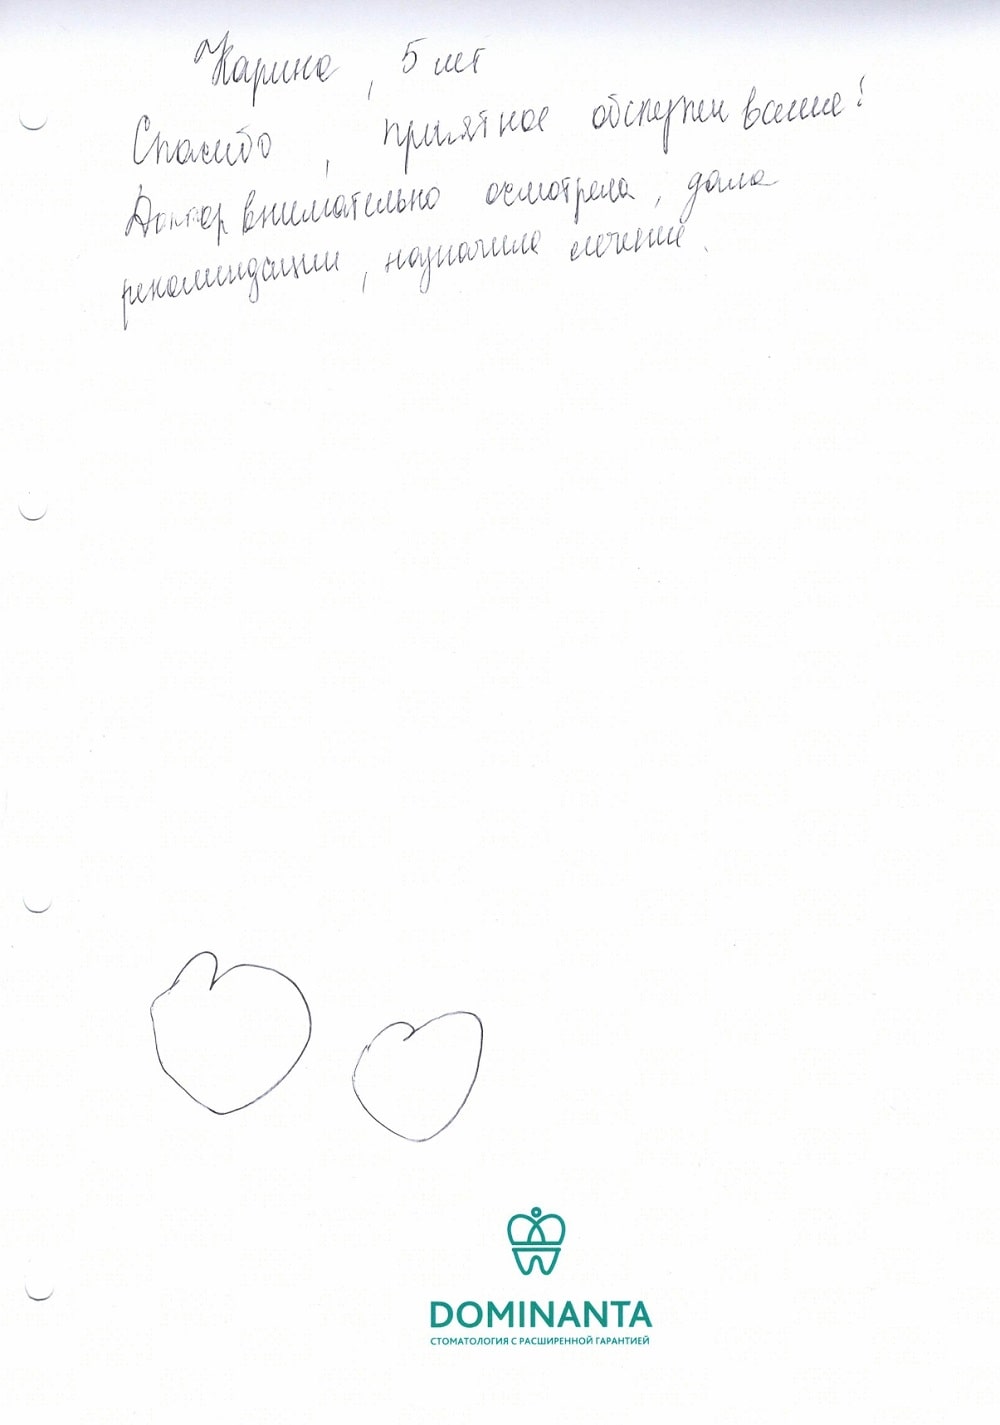 Карина, 5 лет
Спасибо, приятное обслуживание!
Доктор внимательно осмотрела, дала
рекомендации, назначила лечение.
DOMINANTA
СТОМАТОЛОГИЯ С РАСШИРЕННОЙ ГАРАНТИЕЙ